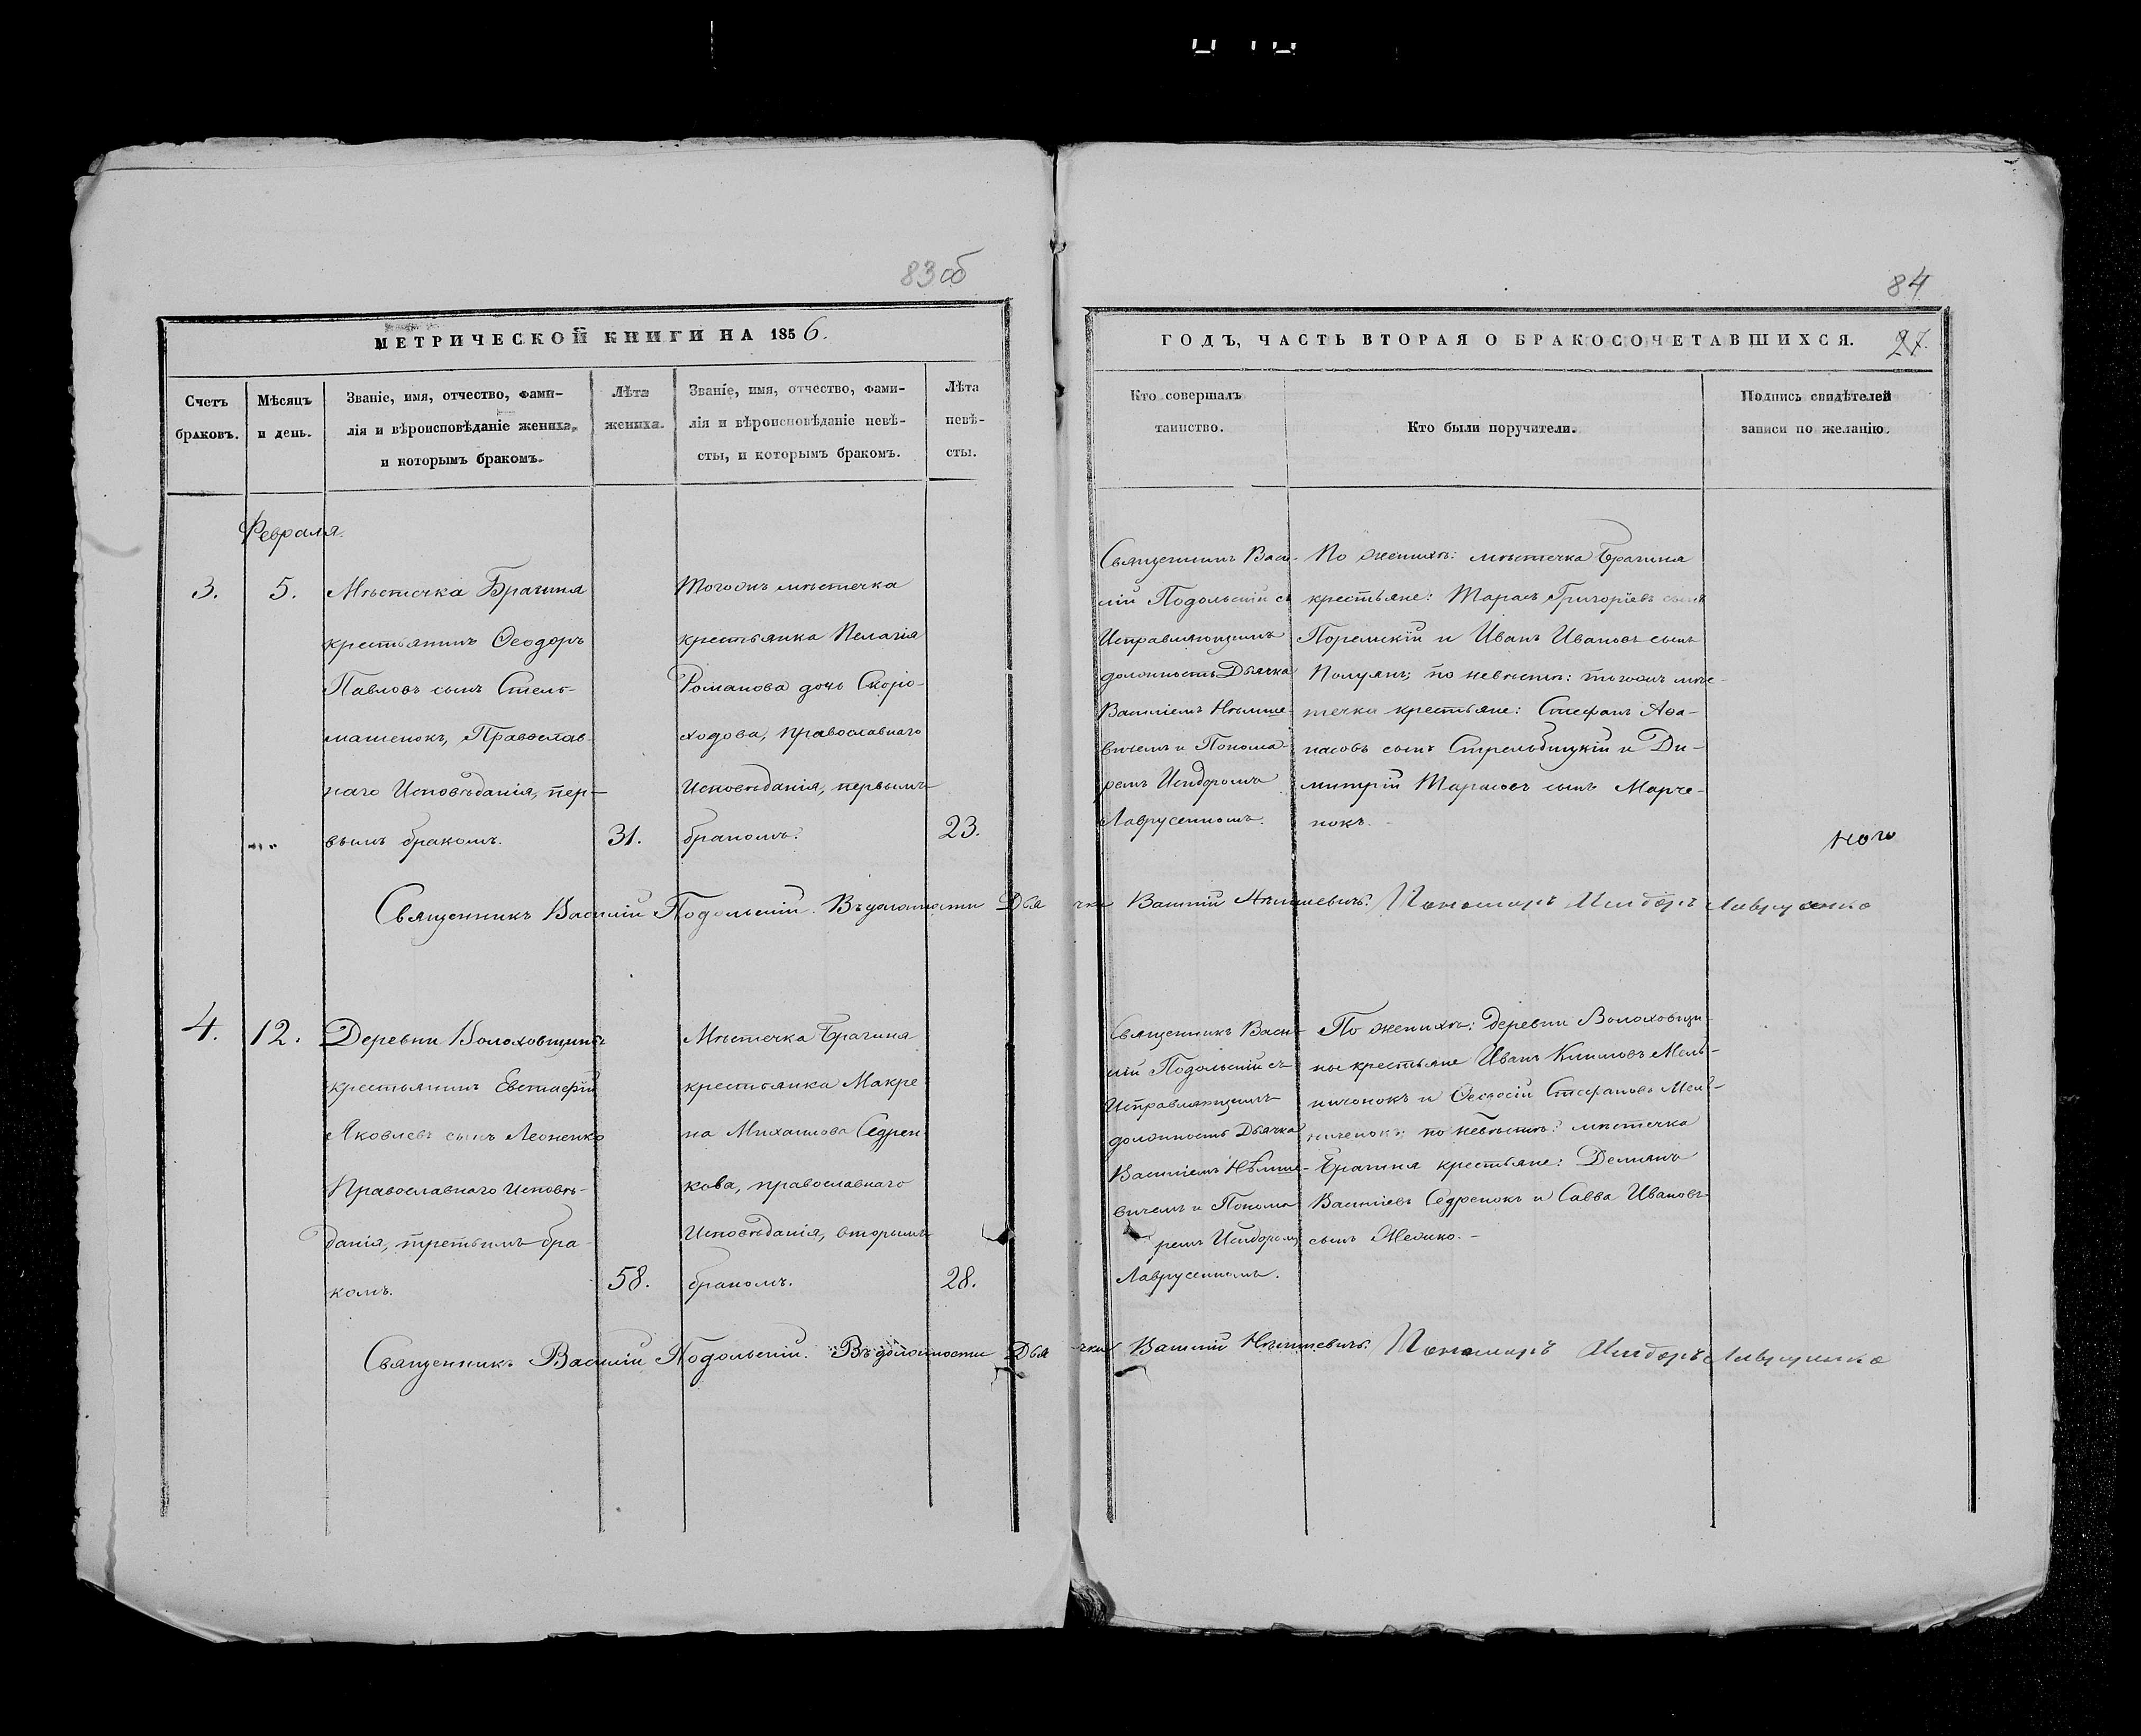 83 об
МЕТРИЧЕСКОЙ КНИГИ НА 1856.
Счетъ
браковъ.
Мѣсяцъ
и день.
Званіе, имя, отчество, фами-
лія и вѣроисповѣданіе жениха,
и которымъ бракомъ.
Лѣта
жениха.
Званіе, имя, отчество, фами-
лія и вѣроисповѣданіе невѣ-
сты, и которымъ бракомъ.
Лѣта
невѣ-
сты.
Февраля.
3.
5.
Мѣстечка Брагина
крестьянинъ Ѳеодоръ
Павловъ сынъ Стель-
машенокъ, Православ-
наго Исповѣданія, пер-
вымъ бракомъ.
31.
Тогожъ мѣстечка
крестьянка Пелагія
Романова дочь Скоро-
ходова, православнаго
Исповѣданія, первымъ
бракомъ.
23.
Священникъ Василій Подольскій. Въ должности Дья
4.
12.
Деревни Волоховщины
крестьянинъ Евстафій
Яковлевъ сынъ Леоненко
Православнаго Исповѣ-
данія, третьимъ бра-
комъ.
58.
Мѣстечка Брагина
крестьянка Макре-
на Михаилова Седрен-
кова, православнаго
Исповѣданія, вторымъ
бракомъ.
28.
Священникъ Василій Подольскій. Въ должности Дья
84
ГОДЪ, ЧАСТЬ ВТОРАЯ О БРАКОСОЧЕТАВШИХСЯ.
27.
Кто совершалъ
таинство.
Кто были поручители.
Подпись свидѣтелей
записи по желанію.
Священникъ Васи-
лій Подольскій съ
Исправляющимъ
должность Дьячка
Василіемъ Нѣмше-
вичемъ и Понома-
ремъ Исидоромъ
Лаврусенкомъ.
По женихѣ: мѣстечка Брагина
крестьяне: Тарасъ Григоріевъ сынъ
и Иванъ Ивановъ сынъ
Полуянъ; по невѣстѣ: тогожъ мѣс-
течка крестьяне: Стефанъ Аѳа-
насовъ сынъ Стрельбицкій и Ди-
митрій Тарасовъ сынъ Марче-
нокъ.
чка Василій Нѣмшевичъ. Пономарь Исидоръ Лаврусенко
Священникъ Васи-
лій Подольскій съ
Исправляющимъ
должность Дьячка
Василіемъ Нѣмше-
вичемъ и Понома
ремъ Исидоромъ
Лаврусенкомъ.
По женихѣ: деревни Волоховщи-
ны крестьяне Иванъ Климовъ Мель-
ниченокъ и Ѳеодосій Стефановъ Мель-
ниченокъ; по невѣстѣ: мѣстечка
Брагина крестьяне: Демьянъ
Василіевъ Седренокъ и Савва Ивановъ
сынъ
чка Василій Нѣмшевичъ. Пономарь Исидоръ Лаврусенко